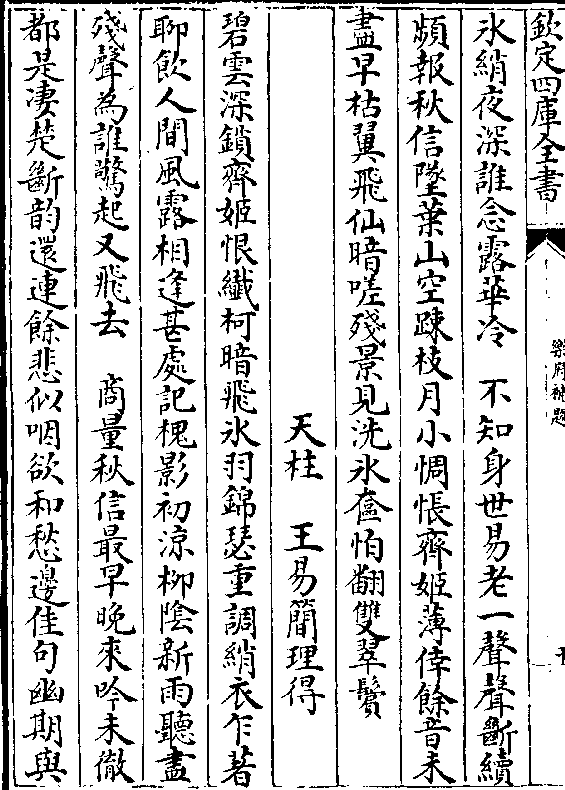 欽定四庫全書
樂府補題
氷綃夜深誰念露華冷　不知身世易老一聲聲斷續
頻報秋信墜葉山空踈枝月小惆悵齊姬薄倖餘音未
盡早枯翼飛仙暗嗟殘景見洗氷奩怕翻雙翠鬢
天柱　王易簡理得
碧雲深鎖齊姬恨纖柯暗飛氷羽錦瑟重調綃衣乍著
聊飲人間風露相逢甚處記槐影初涼柳陰新雨聽盡
殘聲為誰驚起又飛去　商量秋信最早晚來吟未徹
都是凄楚斷韵還連餘悲似咽欲和愁邊佳句幽期與